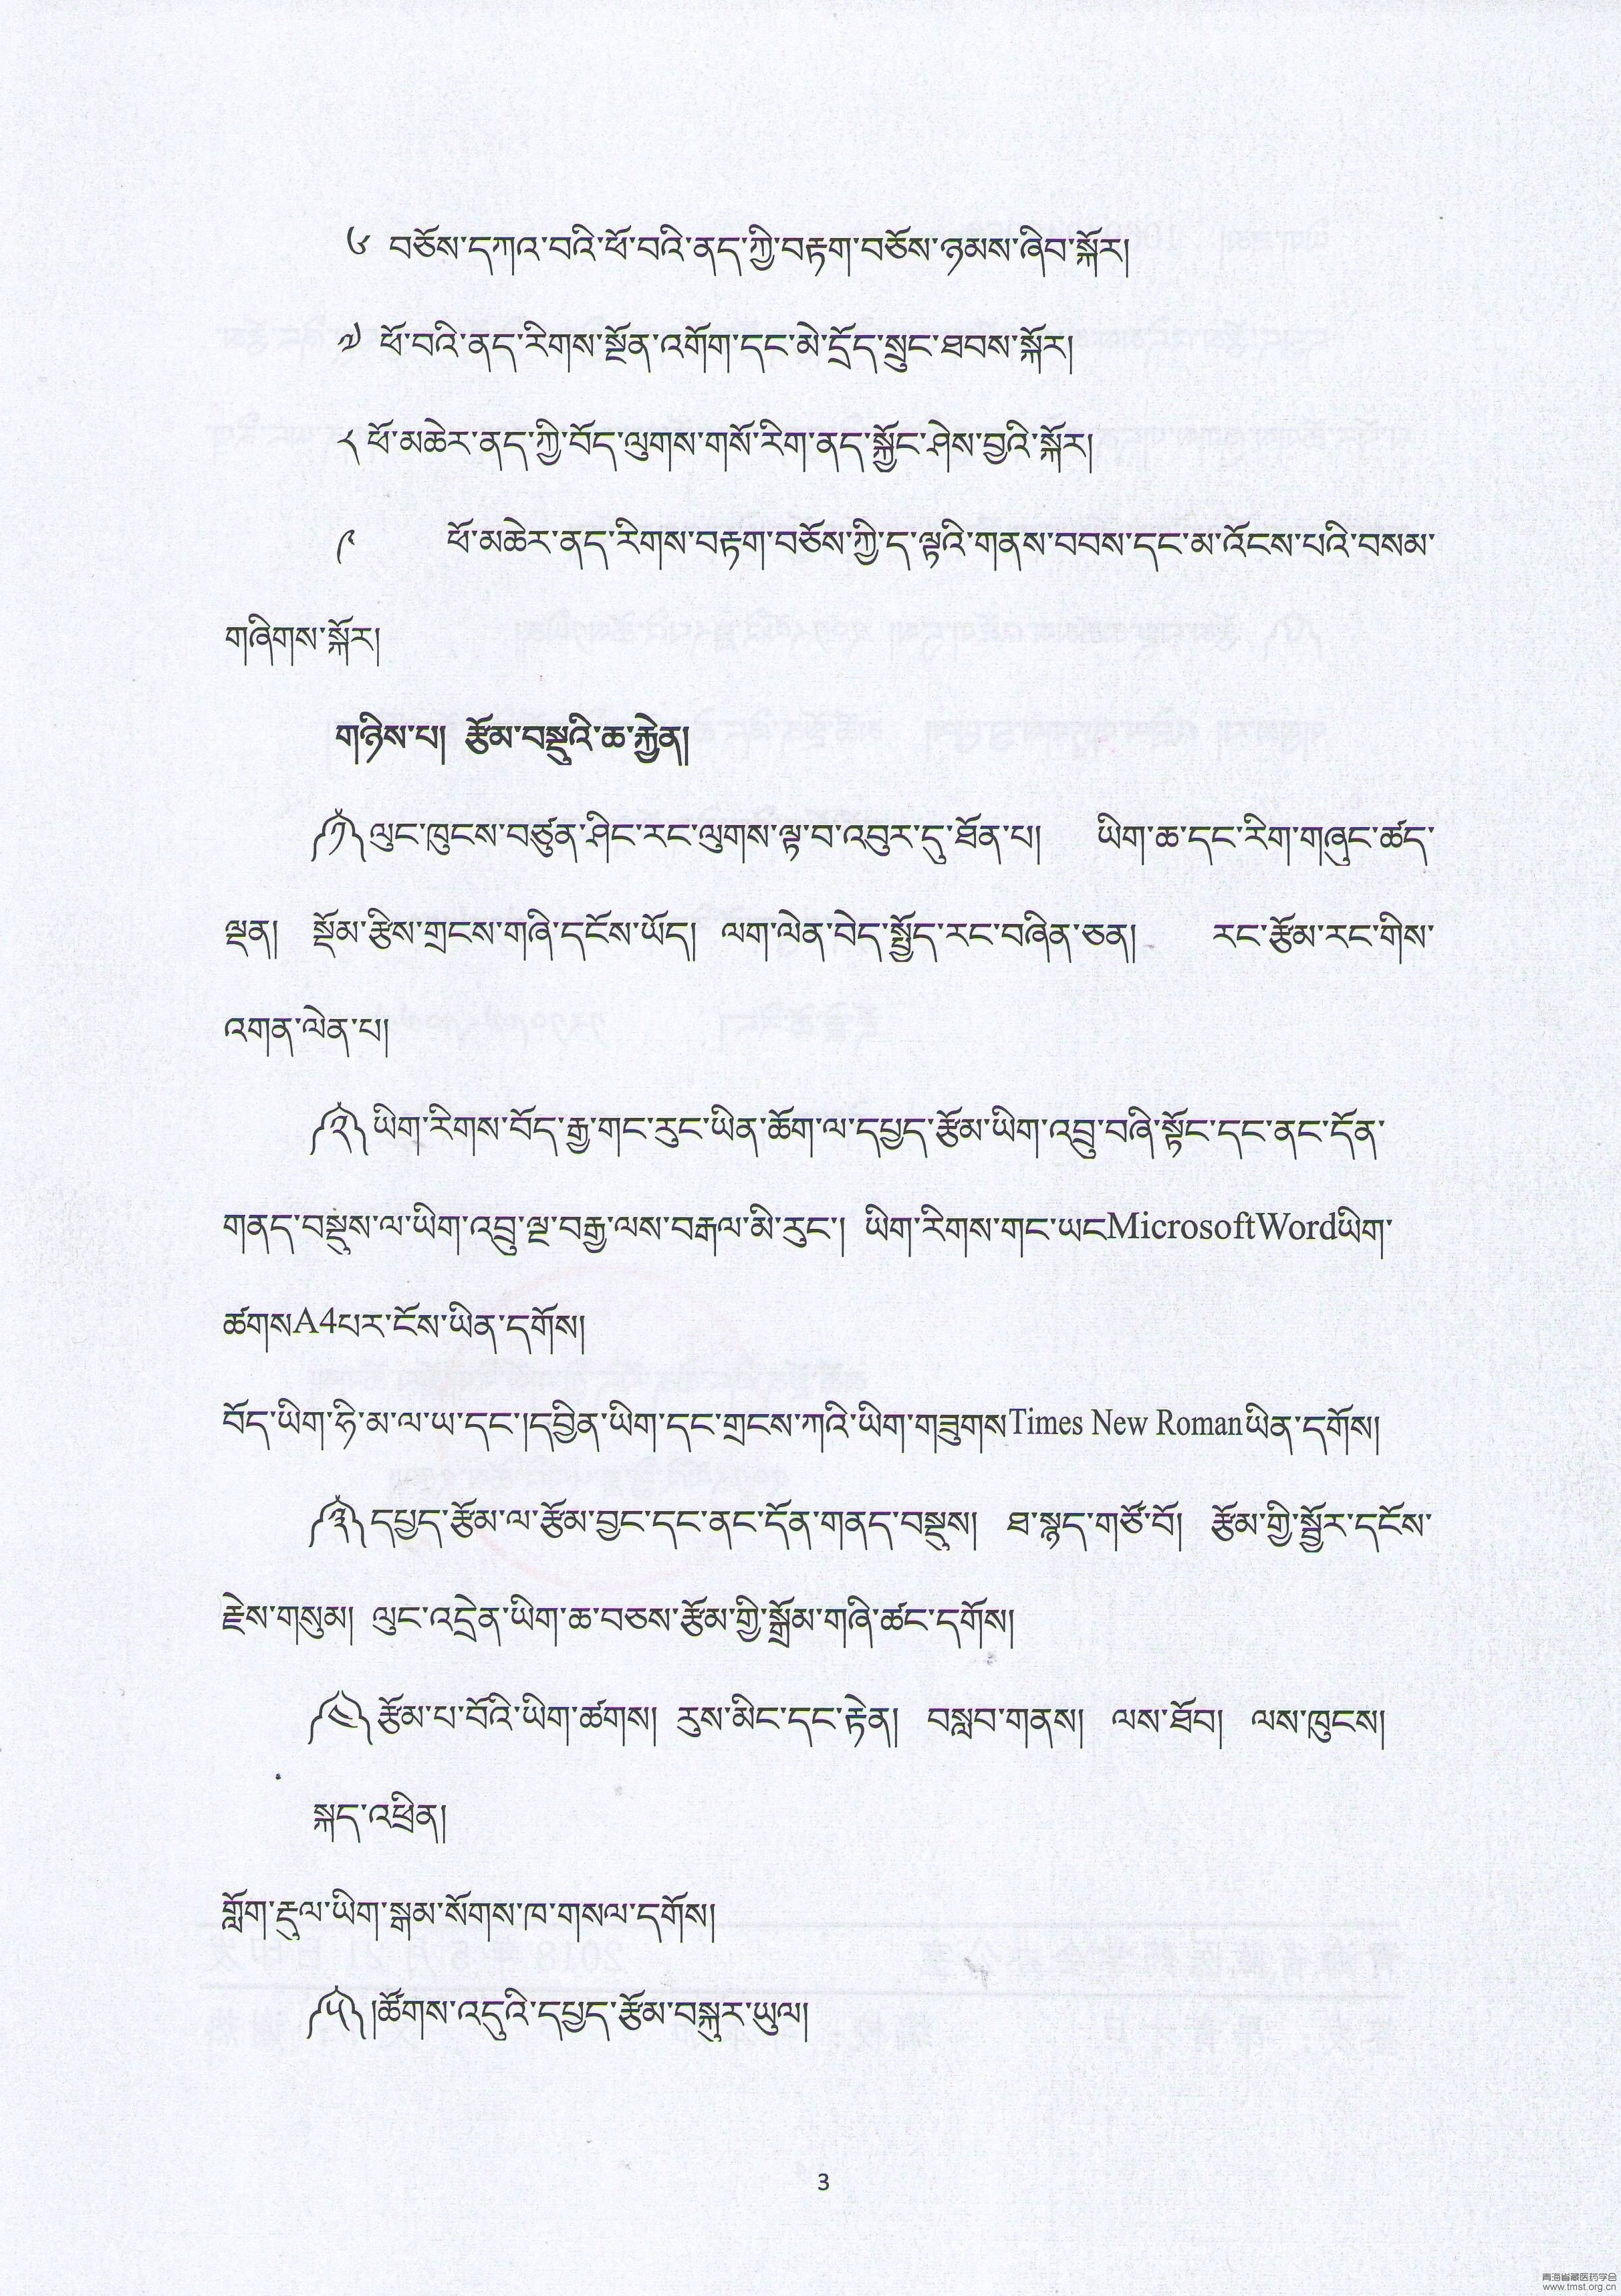 ༦ བཅོས་དཀའ་བའི་ཕོ་བའི་ནད་ཀྱི་བརྟག་བཅོས་ཉམས་ཞིབ་སྐོར།
༧ ཕོ་བའི་ནད་རིགས་སྔོན་འགོག་དང་མེ་དྲོད་སྲུང་ཐབས་སྐོར།
༨ ཕོ་མཆེར་ནད་ཀྱི་བོད་ལུགས་གསོ་རིག་ནད་སྐྱོང་ཤེས་བྱའི་སྐོར།
༩ ཕོ་མཆེར་ནད་རིགས་བརྟག་བཅོས་ཀྱི་ད་ལྟའི་གནས་བབས་དང་མ་འོངས་པའི་བསམ་
གཞིགས་སྐོར།
གཉིས་པ། རྩོམ་བསྡུའི་ཆ་རྐྱེན།
༼༡༽ ལུང་ཁུངས་བཙུན་ཤིང་རང་ལུགས་ལྟ་བ་འབུར་དུ་ཐོན་པ། ཡིག་ཆ་དང་རིག་གཞུང་ཚད་
ལྡན། སྡོམ་རྩིས་གྲངས་གཞི་དངོས་ཡོད། ལག་ལེན་བེད་སྤྱོད་རང་བཞིན་ཅན། རང་རྩོམ་རང་གིས་
འགན་ལེན་པ།
༼༢༽ ཡིག་རིགས་བོད་རྒྱ་གང་རུང་ཡིན་ཆོག་ལ་དཔྱད་རྩོམ་ཡིག་འབྲུ་བཞི་སྟོང་དང་ནང་དོན་
གནད་བསྡུས་ལ་ཡིག་འབྲུ་ལྔ་བརྒྱ་ལས་བརྒལ་མི་རུང་། ཡིག་རིགས་གང་ཡངMicrosoftWordཡིག་
ཚགསA4པར་ངོས་ཡིན་དགོས།
བོད་ཡིག་ཧི་མ་ལ་ཡ་དང་།དབྱིན་ཡིག་དང་གྲངས་ཀའི་ཡིག་གཟུགསTimes New Romanཡིན་དགོས།
༼༣༽ དཔྱད་རྩོམ་ལ་རྩོམ་བྱང་དང་ནང་དོན་གནད་བསྡུས། ཐ་སྙད་གཙོ་བོ། རྩོམ་གྱི་སྦྱོར་དངོས་
རྗེས་གསུམ། ལུང་འདྲེན་ཡིག་ཆ་བཅས་རྩོམ་གྱི་སྒྲོམ་གཞི་ཚང་དགོས།
༼༤༽ རྩོམ་པ་བོའི་ཡིག་ཚགས། རུས་མིང་དང་རྟེན། བསླབ་གནས། ལས་ཐོབ། ལས་ཁུངས།
སྐད་འཕྲིན།
གློག་རྡུལ་ཡིག་སྒམ་སོགས་ཁ་གསལ་དགོས།
༼༥༽ །ཚོགས་འདུའི་དཔྱད་རྩོམ་བསྐུར་ཡུལ།
3
青海省藏医药学会
www.tmst.org.cn